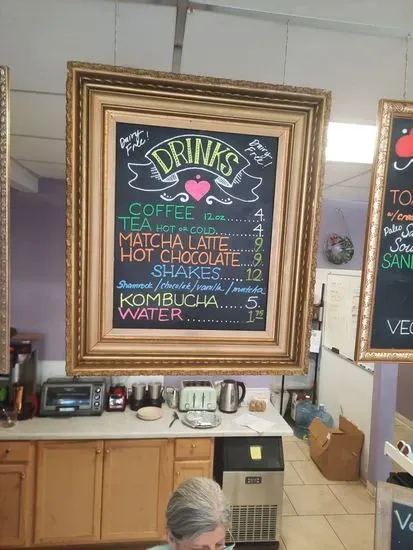 Dairy
Free!
Dairy
Free
DRINKS
COFFEE 12oz.....4
TEA HOT OR COLD....4
MATCHA LATTE...9
HOT CHOCOLATE..9
SHAKES.....12
Shamrock/chocolate/vanilla/matcha
KOMBUCHA.....5
WATER..........1.75
TOA
Paleo
SAN
VEG